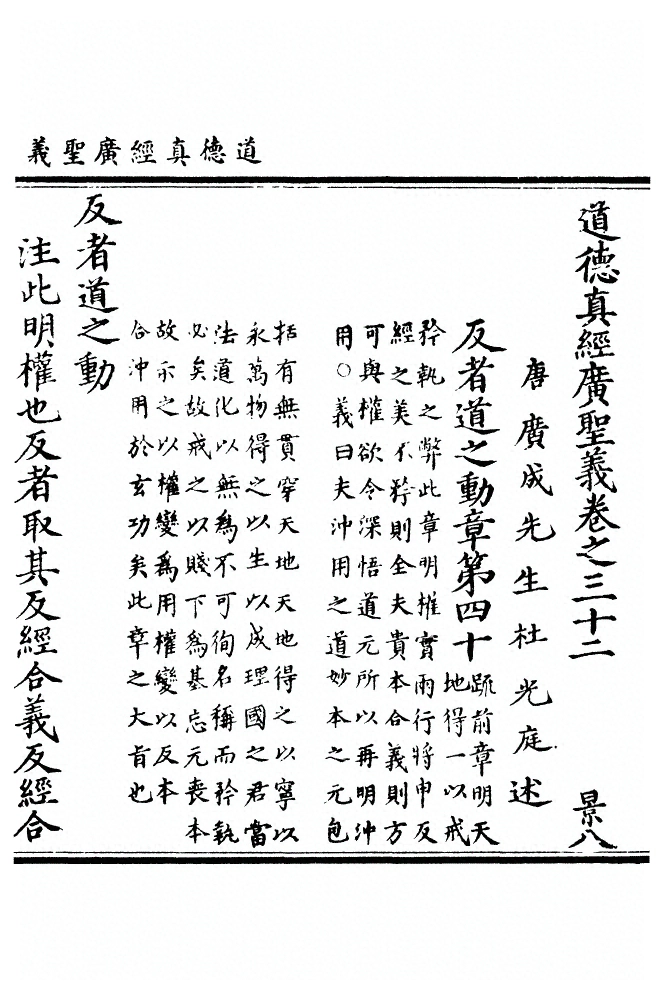 道德真經廣聖義
道德真經廣聖義卷之三十二 景八
唐廣成先生杜光庭述
反者道之動章第四十
疏前章明天
地得一以戒
矜執之弊此章明權實兩行將申反
經之美不矜則全夫貴本合義則方
可與權欲令深悟道元所以再明沖
用○義曰夫沖用之道妙本之元包
括有無貫穿天地天地得之以寧以
永萬物得之以生以成理國之君當
法道化以無為不可徇名稱而矜執
必矣故戒之以賤下爲基忘元喪本
故示之以權變爲用權變以反本
合沖用於玄功矣此章之大旨也
反者道之動
注此明權也反者取其反經合義反經合